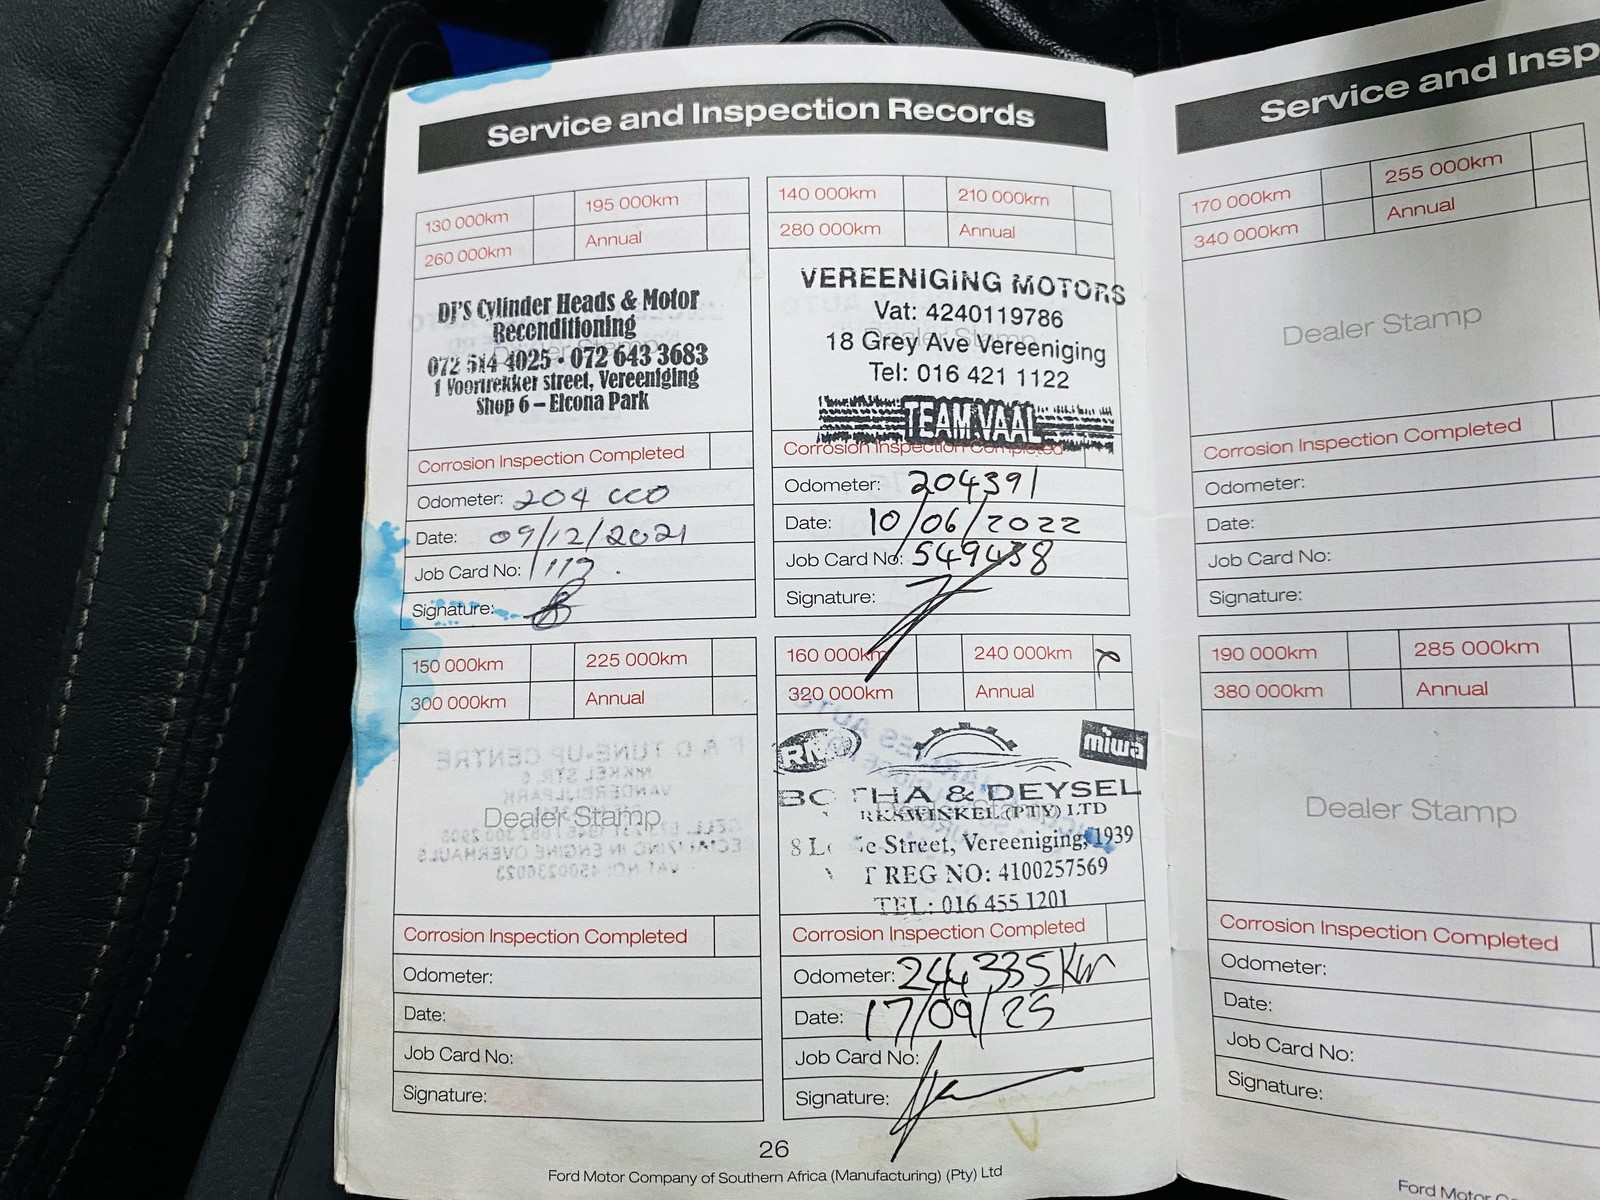 Service and Inspection Records
130 000km 195 000km
260 000km Annual
DJ'S Cylinder Heads & Motor
Reconditioning
072 514 4025 • 072 643 3683
1 Voortrekker street, Vereeniging
Shop 6 – Elcona Park
Corrosion Inspection Completed
Odometer: 204 000
Date: 09/12/2021
Job Card No:
Signature:
140 000km 210 000km
280 000km Annual
VEREENIGING MOTORS
Vat: 4240119786
18 Grey Ave Vereeniging
Tel: 016 421 1122
TEAM VAAL
Corrosion Inspection Completed
Odometer: 204391
Date: 10/06/2022
Job Card No: 549438
Signature:
150 000km 225 000km
300 000km Annual
Dealer Stamp
Corrosion Inspection Completed
Odometer:
Date:
Job Card No:
Signature:
160 000km 240 000km
320 000km Annual
RMI miwa
BOTHA & DEYSEL
(PTY) LTD
Street, Vereeniging, 1939
REG NO: 4100257569
TEL: 016 455 1201
Corrosion Inspection Completed
Odometer: 244335 km
Date: 17/09/25
Job Card No:
Signature:
26
Ford Motor Company of Southern Africa (Manufacturing) (Pty) Ltd
Service and Insp
170 000km 255 000km
340 000km Annual
Dealer Stamp
Corrosion Inspection Completed
Odometer:
Date:
Job Card No:
Signature:
190 000km 285 000km
380 000km Annual
Dealer Stamp
Corrosion Inspection Completed
Odometer:
Date:
Job Card No:
Signature:
Ford Motor